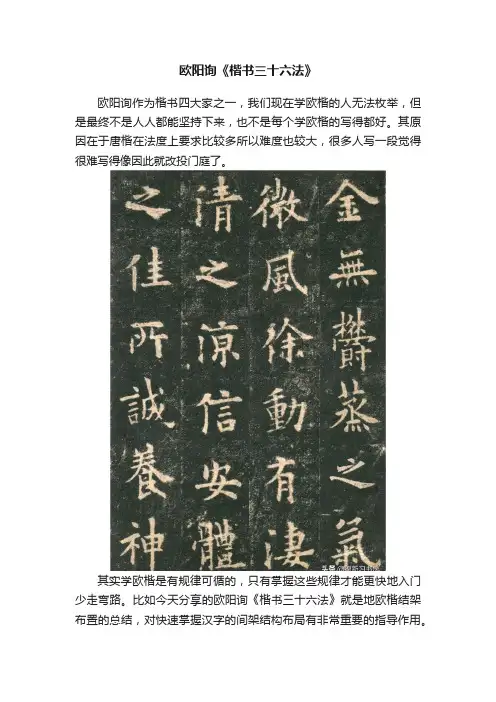 欧阳询《楷书三十六法》
欧阳询作为楷书四大家之一，我们现在学欧楷的人无法枚举，但
是最终不是人人都能坚持下来，也不是每个学欧楷的写得都好。其原
因在于唐楷在法度上要求比较多所以难度也较大，很多人写一段觉得
很难写得像因此就改投门庭了。
金無欝蒸之氣
微風徐動有淒
清之涼信安體
之佳所誠養神
其实学欧楷是有规律可循的，只有掌握这些规律才能更快地入门
少走弯路。比如今天分享的欧阳询《楷书三十六法》就是地欧楷结架
布置的总结，对快速掌握汉字的间架结构布局有非常重要的指导作用。